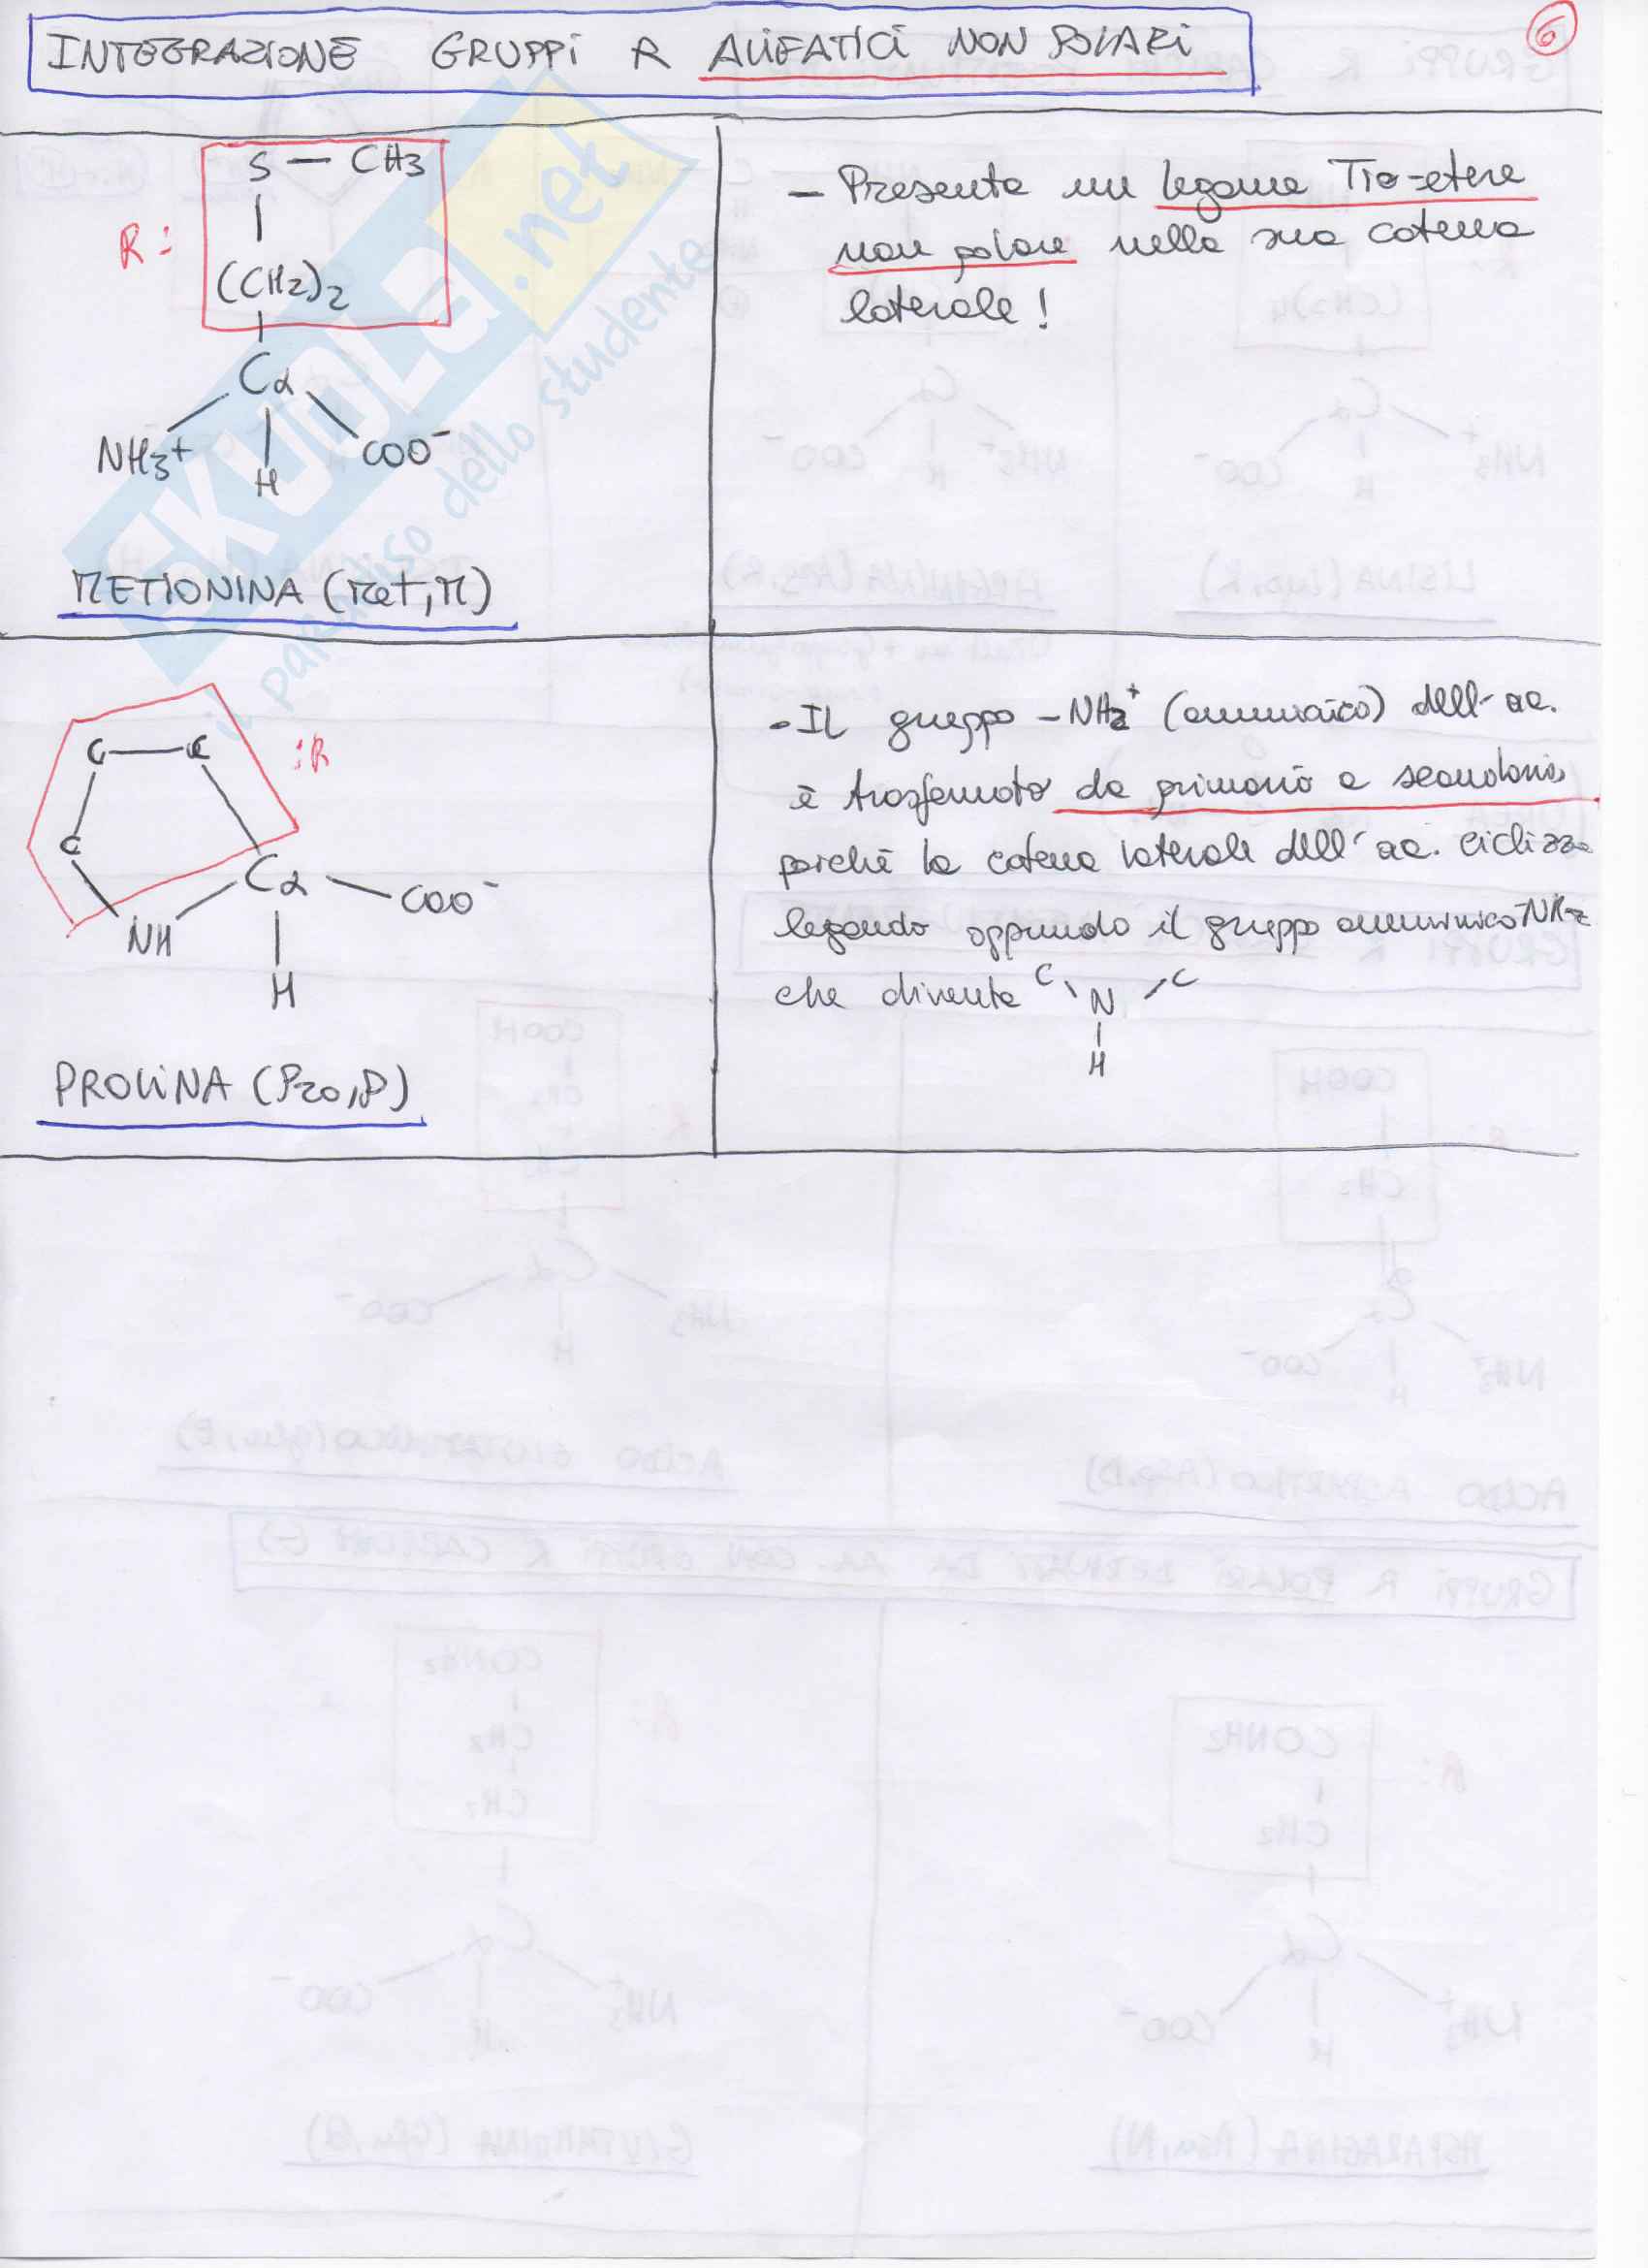 INTEGRAZIONE GRUPPI R ALIFATICI NON POLARI
6
S — CH3
R:
(CH2)2
Cα
NH3+
H
COO-
METIONINA (Met, M)
- Presenta un legame Tio-etere
non polare nella sua catena
laterale!
C — C
:R
C
Cα
COO-
NH
H
PROLINA (Pro, P)
- Il gruppo -NH2+ (amminico) dell' aa.
è trasformato da primario a secondario
perché la catena laterale dell' aa. ciclizza
legando appunto il gruppo amminico NH2
che diventa C N C
H
SKUOLA.net
il paradiso dello studente